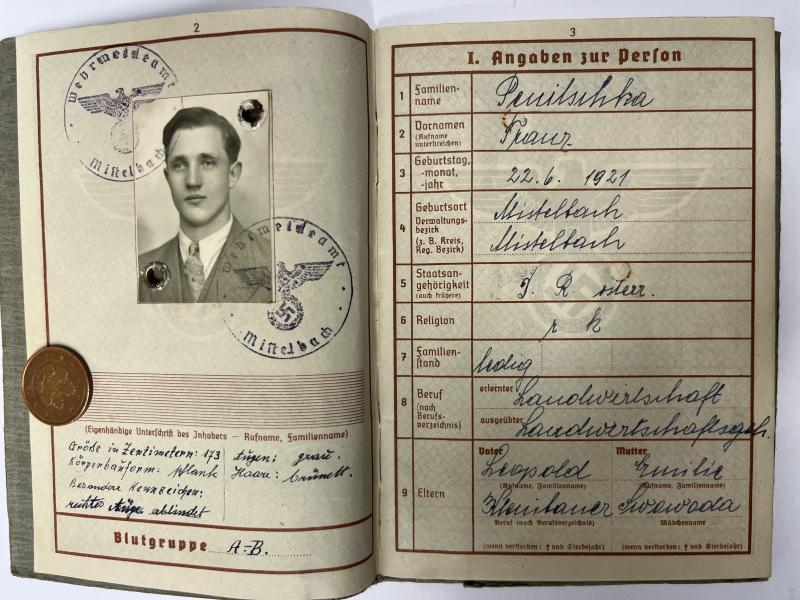 2
Wehrmeldeamt
Mistelbach
Wehrmeldeamt
Mistelbach
(Eigenhändige Unterschrift des Inhabers – Rufname, Familienname)
Größe in Zentimetern: 173 Augen: grau.
Körperbauform: schlank Haare: brünett.
Besondere Kennzeichen:
rechtes Auge erblindet
Blutgruppe A-B.
3
I. Angaben zur Person
1 Familien-
name Penitschka
2 Vornamen
(Rufname
unterstreichen) Franz
3 Geburtstag,
-monat,
-jahr 22.6. 1921
4 Geburtsort Mistelbach
Verwaltungs-
bezirk
(z. B. Kreis,
Reg. Bezirk) Mistelbach
5 Staatsan-
gehörigkeit
(auch frühere) D. R. österr.
6 Religion r k
7 Familien-
stand ledig
8 Beruf
(nach
Berufs-
verzeichnis)
erlernter Landwirtschaft
ausgeübter Landwirtschaftsgeh.
9 Eltern
Vater Mutter
Leopold Emilie
(Rufname, Familienname) (Rufname, Familienname)
Kleinbauer Swowoda
Beruf (nach Berufsverzeichnis) Mädchenname
(wenn verstorben: † und Sterbejahr) (wenn verstorben: † und Sterbejahr)